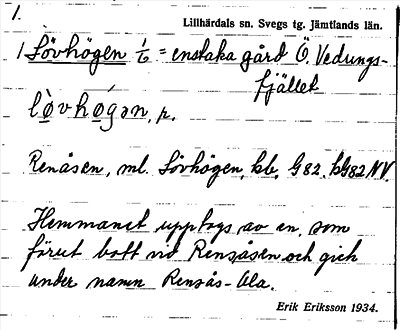 1.
Lillhärdals sn. Svegs tg. Jämtlands län.
1 Lövhögen 1/6 = enstaka gård Ö. Vedungs-
fjället
lø̀vhø̀gən, r.
Renåsen, ml. Lövhögen, kb, G 82. kb G82 NV.
Hemmanet upptogs av en, som
förut bott vid Rensåsen och gick
under namn Rensås-Ola.
Erik Eriksson 1934.